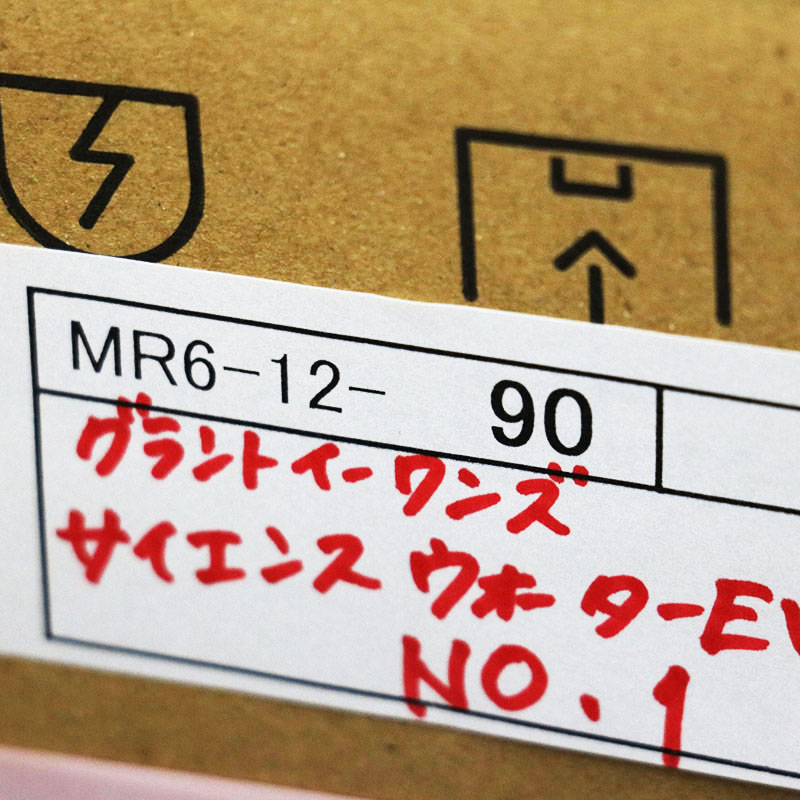 MR6-12- 90
グラントイーワンズ
サイエンス ウォーターEV
NO.1